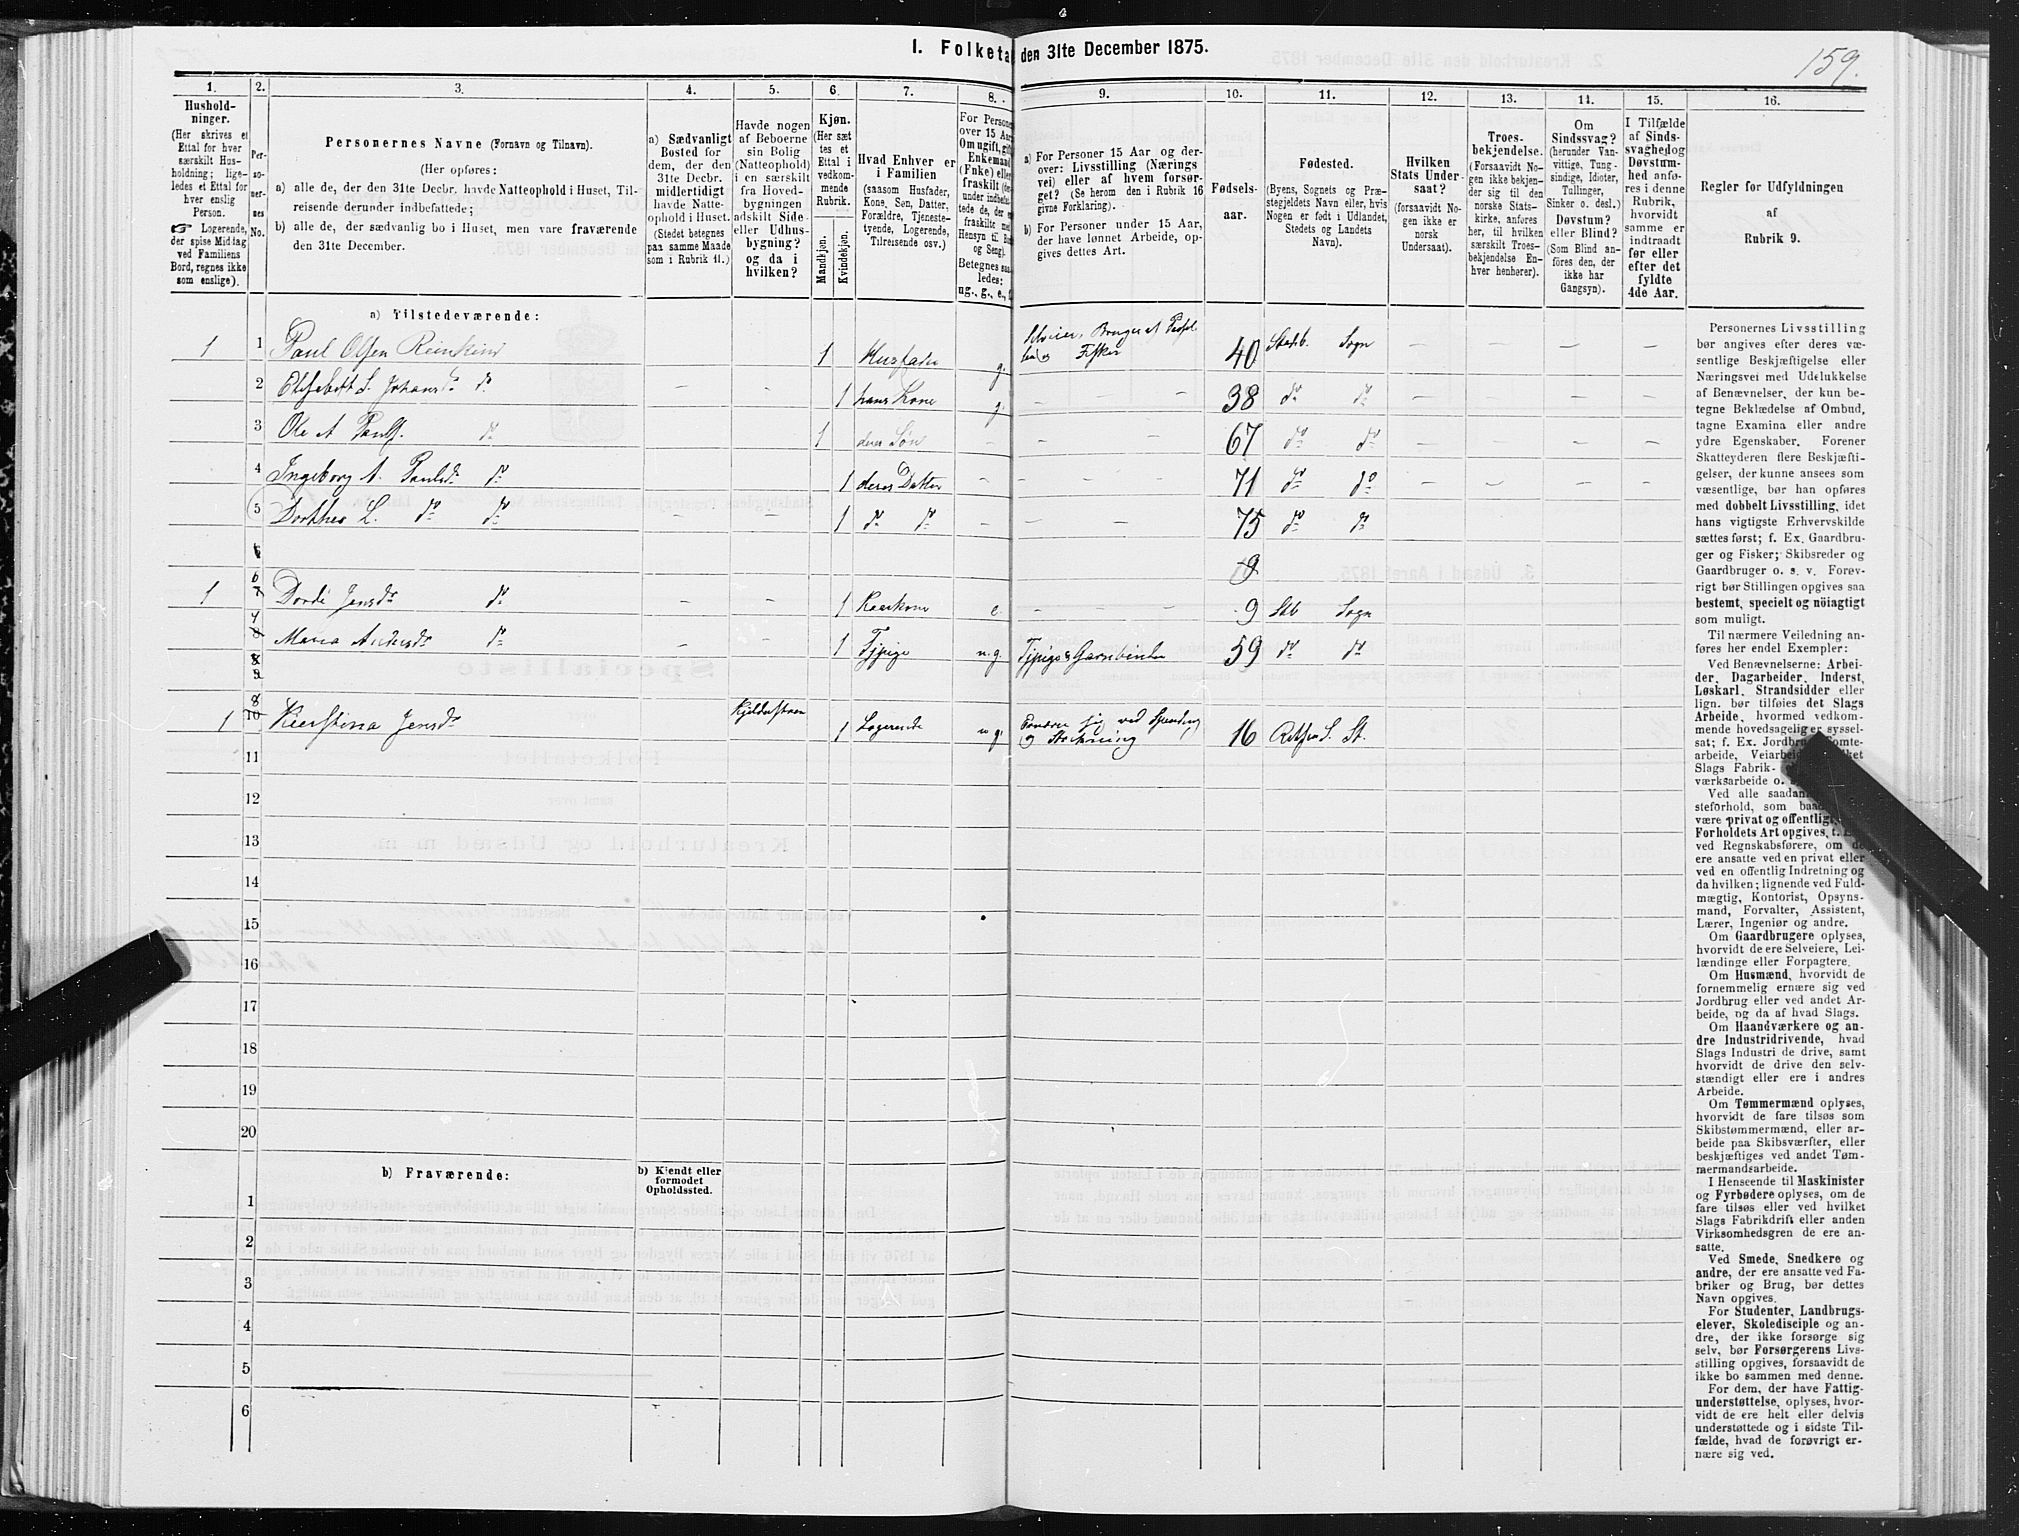 I. Folketal den 31te December 1875.
159.
1. 2. 3. 4. 5. 6. 7. 8. 9. 10. 11. 12. 13. 14. 15. 16.
Hushold-
ninger.
(Her skrives et
Ettal for hver
særskilt Hus-
holdning; lige-
ledes et Ettal for
hver enslig
Person.
☞ Logerende,
der spise Middag
ved Familiens
Bord, regnes ikke
som enslige).
Per-
so-
ner-
nes
No.
Personernes Navne (Fornavn og Tilnavn).
(Her opføres:
a) alle de, der den 31te Decbr. havde Natteophold i Huset, Til-
reisende derunder indbefattede;
b) alle de, der sædvanlig bo i Huset, men vare fraværende
den 31te December.
a) Sædvanligt
Bosted for
dem, der den
31te Decbr.
midlertidigt
havde Natte-
ophold i Huset.
(Stedet betegnes
paa samme Maade
som i Rubrik 11.)
Havde nogen
af Beboerne
sin Bolig
(Natteophold)
i en særskilt
fra Hoved-
bygningen
adskilt Side-
eller Udhus-
bygning?
og da i
hvilken?
Kjøn.
(Her sæt-
tes et
Ettal i
vedkom-
mende
Rubrik.
Mandkjøn.
Kvindekjøn.
Hvad Enhver er
i Familien
(saasom Husfader,
Kone, Søn, Datter,
Forældre, Tjeneste-
tyende, Logerende,
Tilreisende osv.)
For Personer
over 15 Aar:
Om ugift, gift,
Enkemand
(Enke) eller
fraskilt
Betegnes saa-
ledes:
ug., g., e., f.
a) For Personer 15 Aar og der-
over: Livsstilling (Nærings-
vei) eller af hvem forsør-
get? (Se herom den i Rubrik 16
givne Forklaring).
b) For Personer under 15 Aar,
der have lønnet Arbeide, op-
gives dettes Art.
Fødsels-
aar.
Fødested.
(Byens, Sognets og Præ-
stegjeldets Navn eller, hvis
Nogen er født i Udlandet,
Stedets og Landets
Navn).
Hvilken
Stats Under-
saat?
(forsaavidt No-
gen ikke er
norsk
Undersaat).
Troes-
bekjendelse.
(Forsaavidt No-
gen ikke bekjen-
der sig til den
norske Stats-
kirke, anføres
her, til hvilken
særskilt Troes-
bekjendelse En-
hver henhører).
Om
Sindssvag?
(herunder Van-
vittige, Tung-
sindige, Idioter,
Tullinger,
Sinker o. desl.)
Døvstum?
eller Blind?
(Som Blind an-
føres den, der
ikke har
Gangsyn).
I Tilfælde
af Sinds-
svaghed og
Døvstum-
hed anfø-
res i denne
Rubrik,
hvorvidt
samme er
indtraadt
før eller
efter det
fyldte
4de Aar.
Regler for Udfyldningen
af
Rubrik 9.
a) Tilstedeværende:
1 1 Paul Olsen Reinskind 1 Husfader g. Selveier, Bruger af og Fisker 40 Stadsb. Sogn
2 Elisebeth S. Johansd. do 1 hans Kone g. 38 do do
3 Ole A Pauls. do 1 deres Søn 67 do do
4 Ingeborg A. Paulsd. do 1 deres Datter 71 do do
5 Dorthea L. do do 1 do do 75 do do
6
1 7 6 Dordi Jensdr do 1 Kaarkone e. 9 Stb Sogn
8 7 Maria Andersdr do 1 Tjpige u. g. Tjpige & Garnbinden 59 do do
8 9
1 10 8 Kierstina Jensdr 1 Logerende u g. Ernærer sig ved Spinding og Strikning 16
11
12
13
14
15
16
17
18
19
20
b) Fraværende:
b) Kjendt eller
formodet
Opholdssted.
1
2
3
4
5
6
Personernes Livsstilling
bør angives efter deres væ-
sentlige Beskjæftigelse eller
Næringsvei med Udelukkelse
af Benævnelser, der kun be-
tegne Beklædelse af Ombud,
tagne Examina eller andre
ydre Egenskaber. Forener
Skatteyderen flere Beskjæfti-
gelser, der kunne ansees som
væsentlige, bør han opføres
med dobbelt Livsstilling, idet
hans vigtigste Erhvervskilde
sættes først; f. Ex. Gaardbru-
ger og Fisker; Skibsreder og
Gaardbruger o. s. v. Forøv-
rigt bør Stillingen opgives saa
bestemt, specielt og nöiagtigt
som muligt.
Til nærmere Veiledning an-
føres her endel Exempler:
Ved Benævnelserne: Arbei-
der, Dagarbeider, Inderst,
Løskarl, Strandsidder eller
lign. bør tilføies det Slags
Arbeide, hvormed vedkom-
mende hovedsagelig er syssel-
sat; f. Ex. Jordbrug, Tomte-
arbeide, Veiarbeide,
Slags Fabrik-
værksarbeide o.
Ved alle saadan
steforhold, som
være privat og offentligt,
Forholdets Art opgives, t. Ex.
ved Regnskabsførere, om de
ere ansatte ved en privat eller
ved en offentlig Indretning og
da hvilken; lignende ved Fuld-
mægtig, Kontorist, Opsyns-
mand, Forvalter, Assistent,
Lærer, Ingeniør og andre.
Om Gaardbrugere oplyses,
hvorvidt de ere Selveiere, Lei-
lændinge eller Forpagtere.
Om Husmænd, hvorvidt de
fornemmelig ernære sig ved
Jordbrug eller ved andet Ar-
beide, og da af hvad Slags.
Om Haandværkere og an-
dre Industridrivende, hvad
Slags Industri de drive, samt
hvorvidt de drive den selv-
stændigt eller ere i andres
Arbeide.
Om Tømmermænd oplyses,
hvorvidt de fare tilsøs som
Skibstømmermænd, eller ar-
beide paa Skibsværfter, eller
beskjæftiges ved andet Tøm-
mermandsarbeide.
I Henseende til Maskinister
og Fyrbødere oplyses, om de
fare tilsøs eller ved hvilket
Slags Fabrikdrift eller anden
Virksomhedsgren de ere an-
satte.
Ved Smede, Snedkere og
andre, der ere ansatte ved Fa-
briker og Brug, bør dettes
Navn opgives.
For Studenter, Landbrugs-
elever, Skoledisciple og an-
dre, der ikke forsørge sig
selv, bør Forsørgerens Livs-
stilling opgives, forsaavidt de
ikke bo sammen med denne.
For dem, der have Fattig-
understøttelse, oplyses, hvor-
vidt de ere helt eller delvis
understøttede og i sidste Til-
fælde, hvad de forøvrigt er-
nære sig ved.